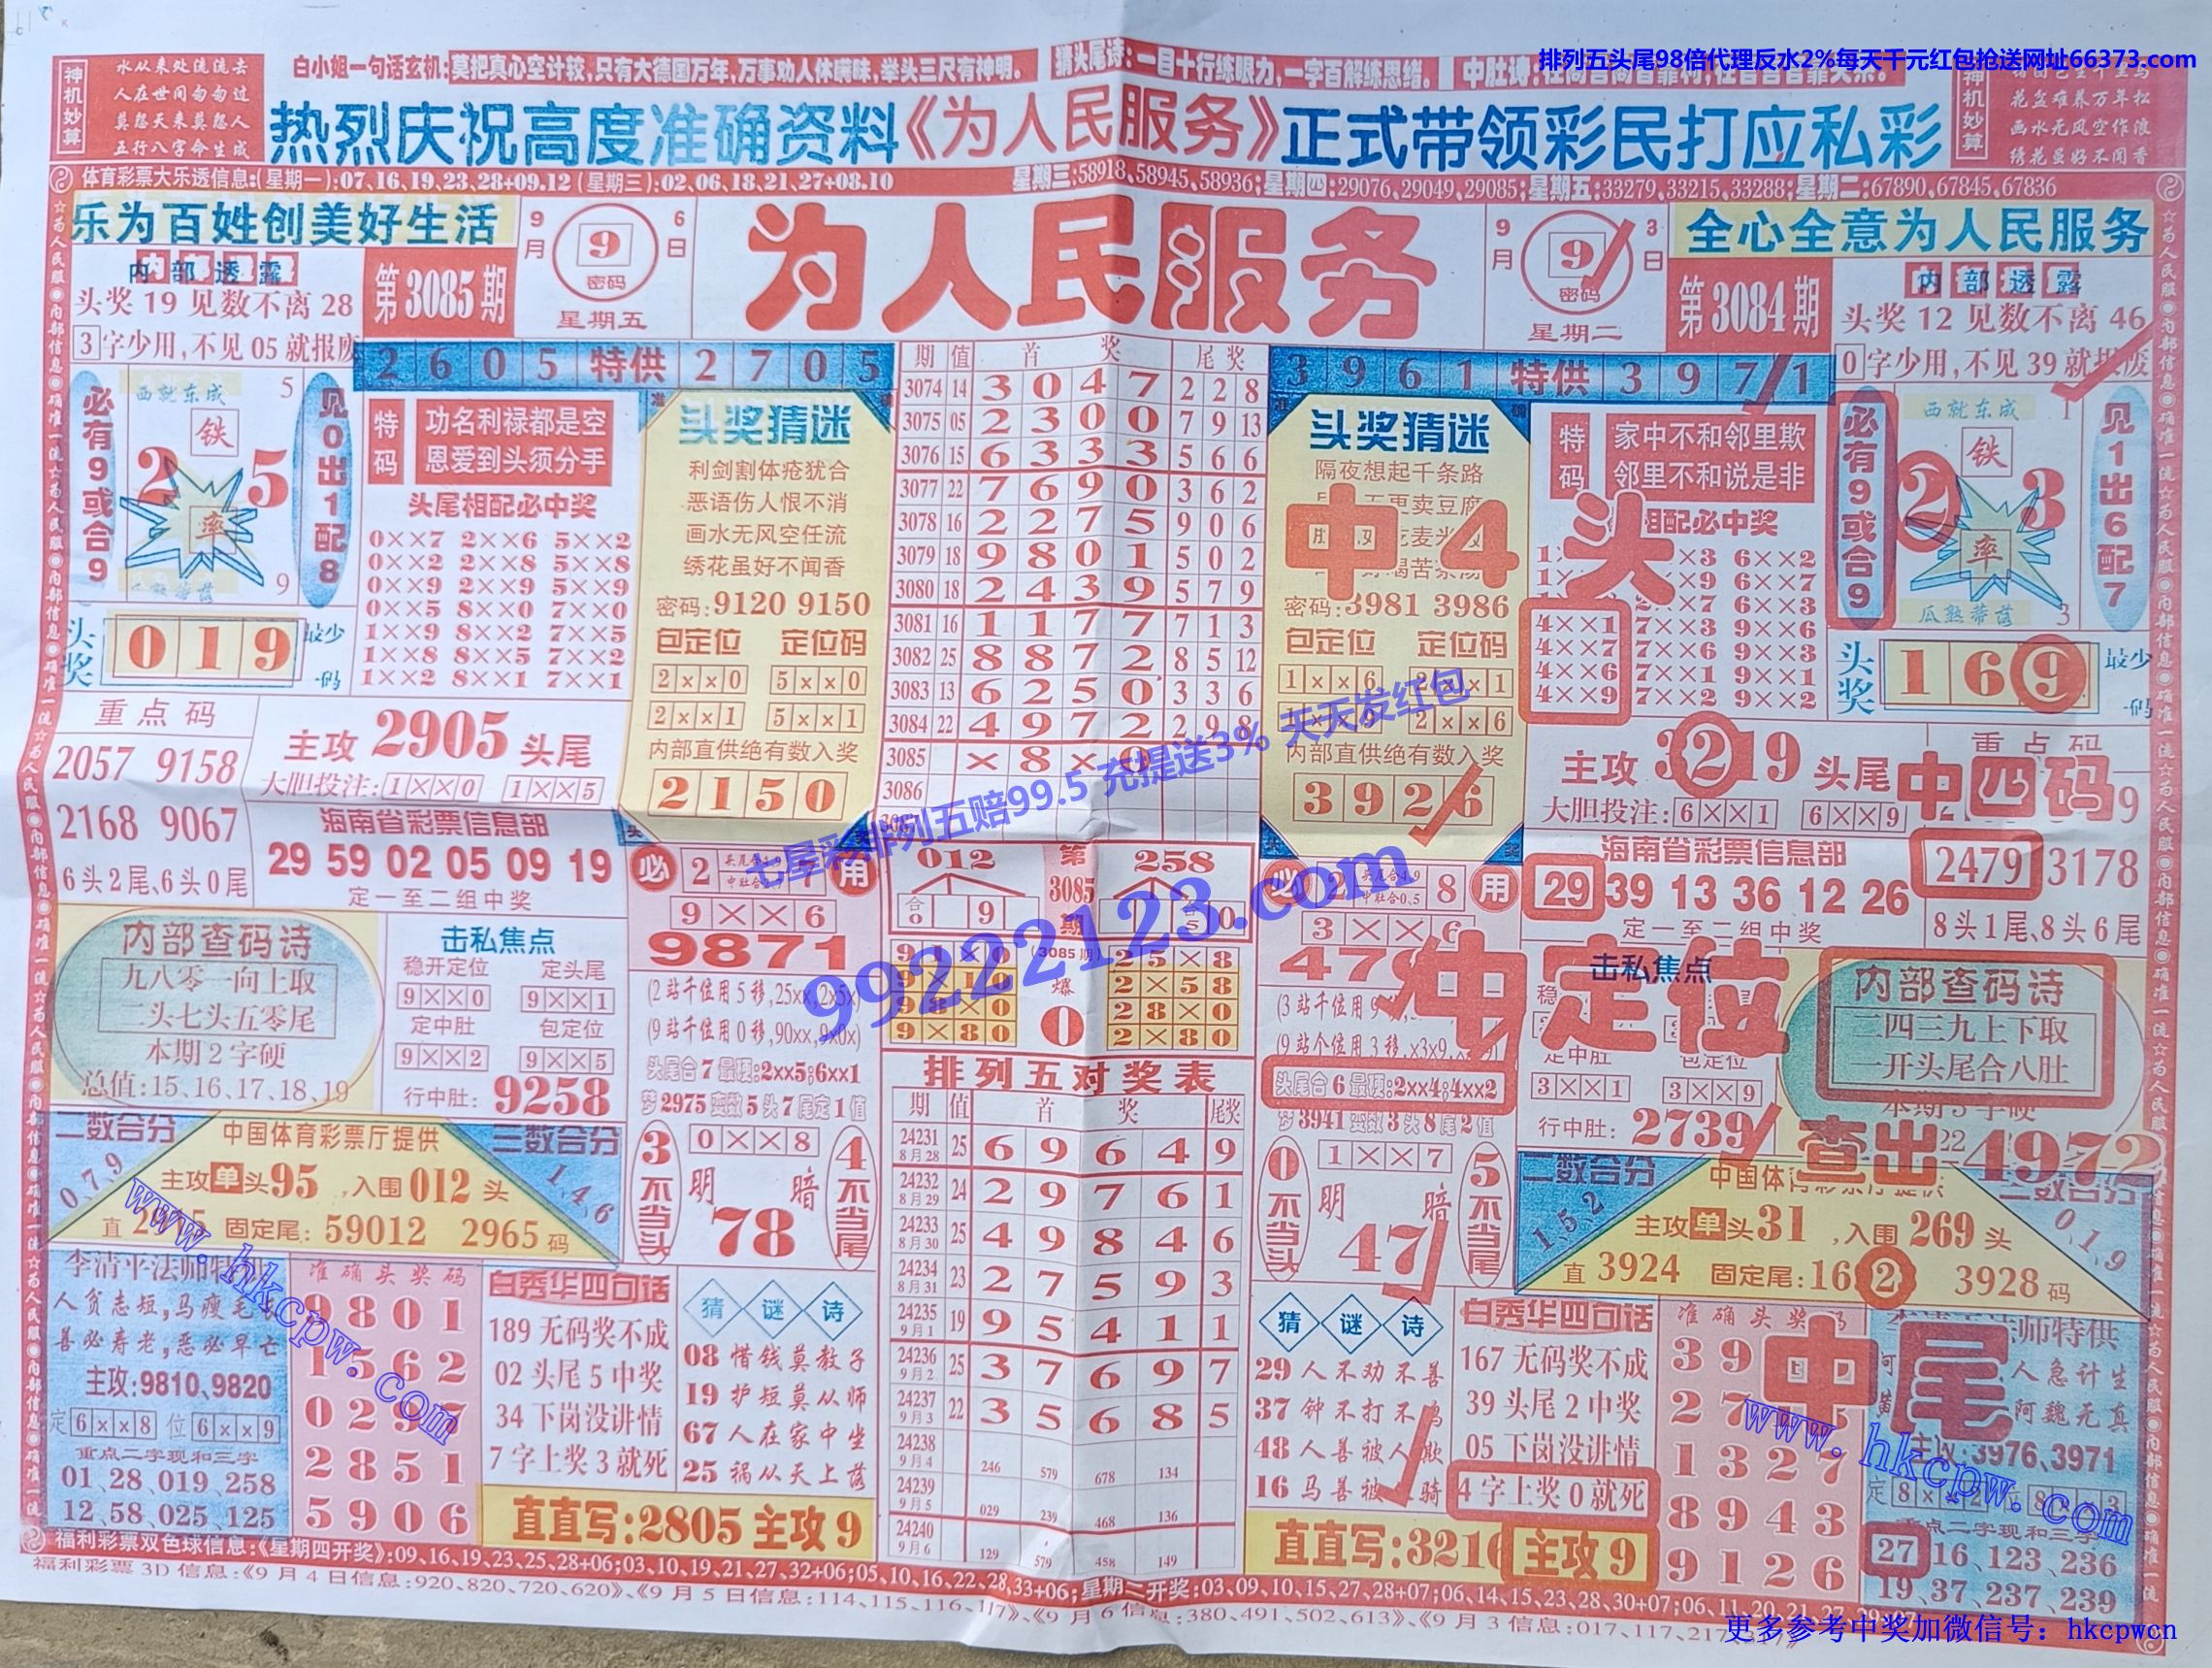 排列五头尾98倍代理反水2%每天千元红包抢送网址66373.com
白小姐一句话玄机:莫把真心空计较,只有大德国万年,万事劝人休瞒昧,举头三尺有神明。
猜头尾诗:一目十行练眼力,一字百解练思绪。
神机妙算
水从来处流流去
人在世间匆匆过
莫怨天来莫怨人
五行八字命生成
热烈庆祝高度准确资料《为人民服务》正式带领彩民打应私彩
神机妙算
花盆难养万年松
画水无风空作浪
绣花虽好不闻香
体育彩票大乐透信息:(星期一):07、16、19、23、28+09.12 (星期三):02、06、18、21、27+08.10
星期三:58918、58945、58936;星期四:29076、29049、29085;星期五:33279、33215、33288;星期二:67890、67845、67836
乐为百姓创美好生活
9月6日
9
密码
星期五
为人民服务
9月3日
9
密码
星期二
全心全意为人民服务
内部透露
头奖 19 见数不离 28
3字少用,不见 05 就报废
第3085期
第3084期
内部透露
头奖 12 见数不离 46
0字少用,不见 39 就报废
2605特供2705
必有9或合9
西就东成
5
铁
2 5
率
9
见0出1配8
特码
功名利禄都是空
恩爱到头须分手
头尾相配必中奖
0××7 2××6 5××2
0××2 2××8 5××8
0××9 2××9 5××9
0××5 8××0 7××0
1××9 8××2 7××5
1××8 8××5 7××2
1××2 8××1 7××1
头奖 019 最少一码
头奖猜迷
利剑割体疮犹合
恶语伤人恨不消
画水无风空任流
绣花虽好不闻香
密码:9120 9150
包定位 定位码
2××0 5××0
2××1 5××1
内部直供绝有数入奖
2150
重点码
2057 9158
2168 9067
6头2尾、6头0尾
主攻 2905 头尾
大胆投注:1××0 1××5
海南省彩票信息部
29 59 02 05 09 19
定一至二组中奖
期 值 首奖 尾奖
3074 14 3 0 4 7 2 2 8
3075 05 2 3 0 0 7 9 13
3076 15 6 3 3 3 5 6 6
3077 22 7 6 9 0 3 6 2
3078 16 2 2 7 5 9 0 6
3079 18 9 8 0 1 5 0 2
3080 18 2 4 3 9 5 7 9
3081 16 1 1 7 7 7 1 3
3082 25 8 8 7 2 8 5 12
3083 13 6 2 5 0 3 3 6
3084 22 4 9 7 2 2 9 8
3085 × 8 × 9
3086
3961特供3971
头奖猜迷
隔夜想起千条路
密码:3981 3986
包定位 定位码
1××6
2××6
内部直供绝有数入奖
3926
中4头
特码
家中不和邻里欺
邻里不和说是非
相配必中奖
×3 6××2
×9 6××7
×7 6××3
4××1 7××3 9××6
4××7 7××6 9××3
4××6 7××1 9××1
4××9 7××2 9××2
必有9或合9
西就东成
1
铁
2 3
率
瓜熟蒂落
3
见1出6配7
头奖 169 最少一码
主攻 3219 头尾
大胆投注:6××1 6××9
重点码
中四码
2479 3178
8头1尾、8头6尾
海南省彩票信息部
29 39 13 36 12 26
定一至二组中奖
七星彩排列五赔99.5 充提送3% 天天发红包
99222123.com
内部查码诗
九八零一向上取
二头七头五零尾
本期2字硬
总值:15、16、17、18、19
击私焦点
稳开定位 定头尾
9××0 9××1
定中肚 包定位
9××2 9××5
行中肚: 9258
必 2 用
9××6
9871
(2站千位用5移,25xx,2x5x)
(9站千位用0移,90xx,9x0x)
头尾合7 最项:2xx5;6xx1
梦2975 变数5头7尾定1值
012
第3085期
258
合0 9
(3085期)
9××0
98×0
9×80
爆 0
25×8
2×58
28×0
2×80
必 8 用
3××6
头尾合6 最项:2xx4;4xx2
梦3941变数3头8尾2值
中定位
击私焦点
定中肚 包定位
3××1 3××9
行中肚: 2739
内部查码诗
二四三九上下取
一开头尾合八肚
查出4972
二数合分
0、7、9
中国体育彩票厅提供
主攻单头95,入围012头
固定尾:59012 2965码
三数合分
1、4、6
3不当头
0××8
明 暗
78
4不当尾
排列五对奖表
期 值 首奖 尾奖
24231 8月28 25 6 9 6 4 9
24232 8月29 24 2 9 7 6 1
24233 8月30 25 4 9 8 4 6
24234 8月31 23 2 7 5 9 3
24235 9月1 19 9 5 4 1 1
24236 9月2 25 3 7 6 9 7
24237 9月3 22 3 5 6 8 5
24238 9月4 246 579 678 134
24239 9月5 029 239 468 136
24240 9月6 129 579 458 149
0不当头
1××7
明 暗
47
5不当尾
二数合分
1、5、2
中国体育彩票厅提供
主攻单头31,入围269头
直 3924 固定尾:162 3928码
0、1、9
李清平法师特供
人贫志短,马瘦毛长
善必寿老,恶必早亡
主攻:9810、9820
定 6××8 位 6××9
重点二字现和三字
01、28、019、258
12、58、025、125
准确头奖码
9801
1562
0297
2851
5906
白秀华四句话
189 无码奖不成
02 头尾5中奖
34 下岗没讲情
7字上奖3就死
猜谜诗
08 惜钱莫教子
19 护短莫从师
67 人在家中坐
25 祸从天上落
直直写:2805 主攻9
猜谜诗
29 人不劝不善
37 钟不打不鸣
48 人善被人欺
16 马善被人骑
白秀华四句话
167 无码奖不成
39 头尾2中奖
05 下岗没讲情
4字上奖0就死
直直写:3216 主攻9
准确头奖码
1327
8943
9126
中尾
师特供
人急计生
阿魏无真
主攻:3976、3971
重点二字现和三字
27、16、123、236
19、37、237、239
www.hkcpw.com
www.hkcpw.com
福利彩票双色球信息:《星期四开奖》:09、16、19、23、25、28+06;03、10、19、21、27、32+06;05、10、16、22、28、33+06;星期二开奖:03、09、10、15、27、28+07;06、14、15、23、28、30+07;06、11、20、21、27
福利彩票3D信息:《9月4日信息:920、820、720、620》、《9月5日信息:114、115、116、117》、《9月6信息:380、491、502、613》、《9月3信息:017、117、217
更多参考中奖加微信号:hkcpwcn